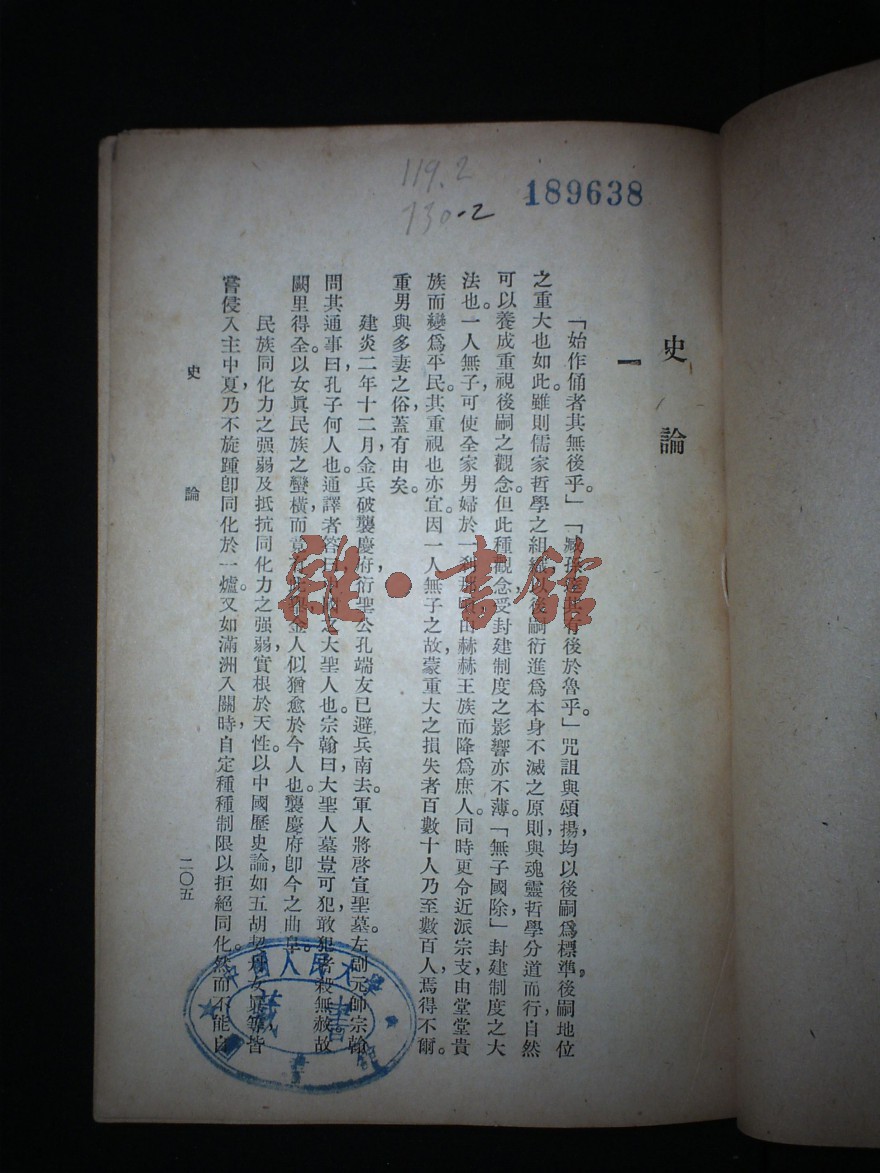 119.2
730-2
189638
史論
一
「始作俑者其無後乎」「臧孫達其有後於魯乎。」咒詛與頌揚,均以後嗣爲標準。後嗣地位
之重大也如此。雖則儒家哲學之組織,以後嗣衍進爲本身不滅之原則,與魂靈哲學分道而行,自然
可以養成重視後嗣之觀念。但此種觀念,受封建制度之影響亦不薄。「無子國除」封建制度之大
法也。一人無子,可使全家男婦於一剎那頃由赫赫王族而降爲庶人。同時更令近派宗支,由堂堂貴
族而變爲平民。其重視也亦宜。因一人無子之故,蒙重大之損失者百數十人乃至數百人,焉得不爾。
重男與多妻之俗,蓋有由矣。
建炎二年十二月,金兵破襲慶府,衍聖公孔端友已避兵南去。軍人將啓宣聖墓。左副元帥宗翰
問其通事曰,孔子何人也。通譯者答曰,中國之大聖人也。宗翰曰,大聖人墓豈可犯,敢犯者殺無赦。故
闕里得全。以女眞民族之蠻橫,而金人似猶愈於今人也。襲慶府卽今之曲阜。
民族同化力之强弱及抵抗同化力之强弱,實根於天性。以中國歷史論,如五胡契丹女眞等皆
嘗侵入主中夏,乃不旋踵卽同化於一爐。又如滿洲入關時,自定種種制限以拒絕同化。然而不能自
史論
二〇五
雜·書館
中國人民大學
藏書